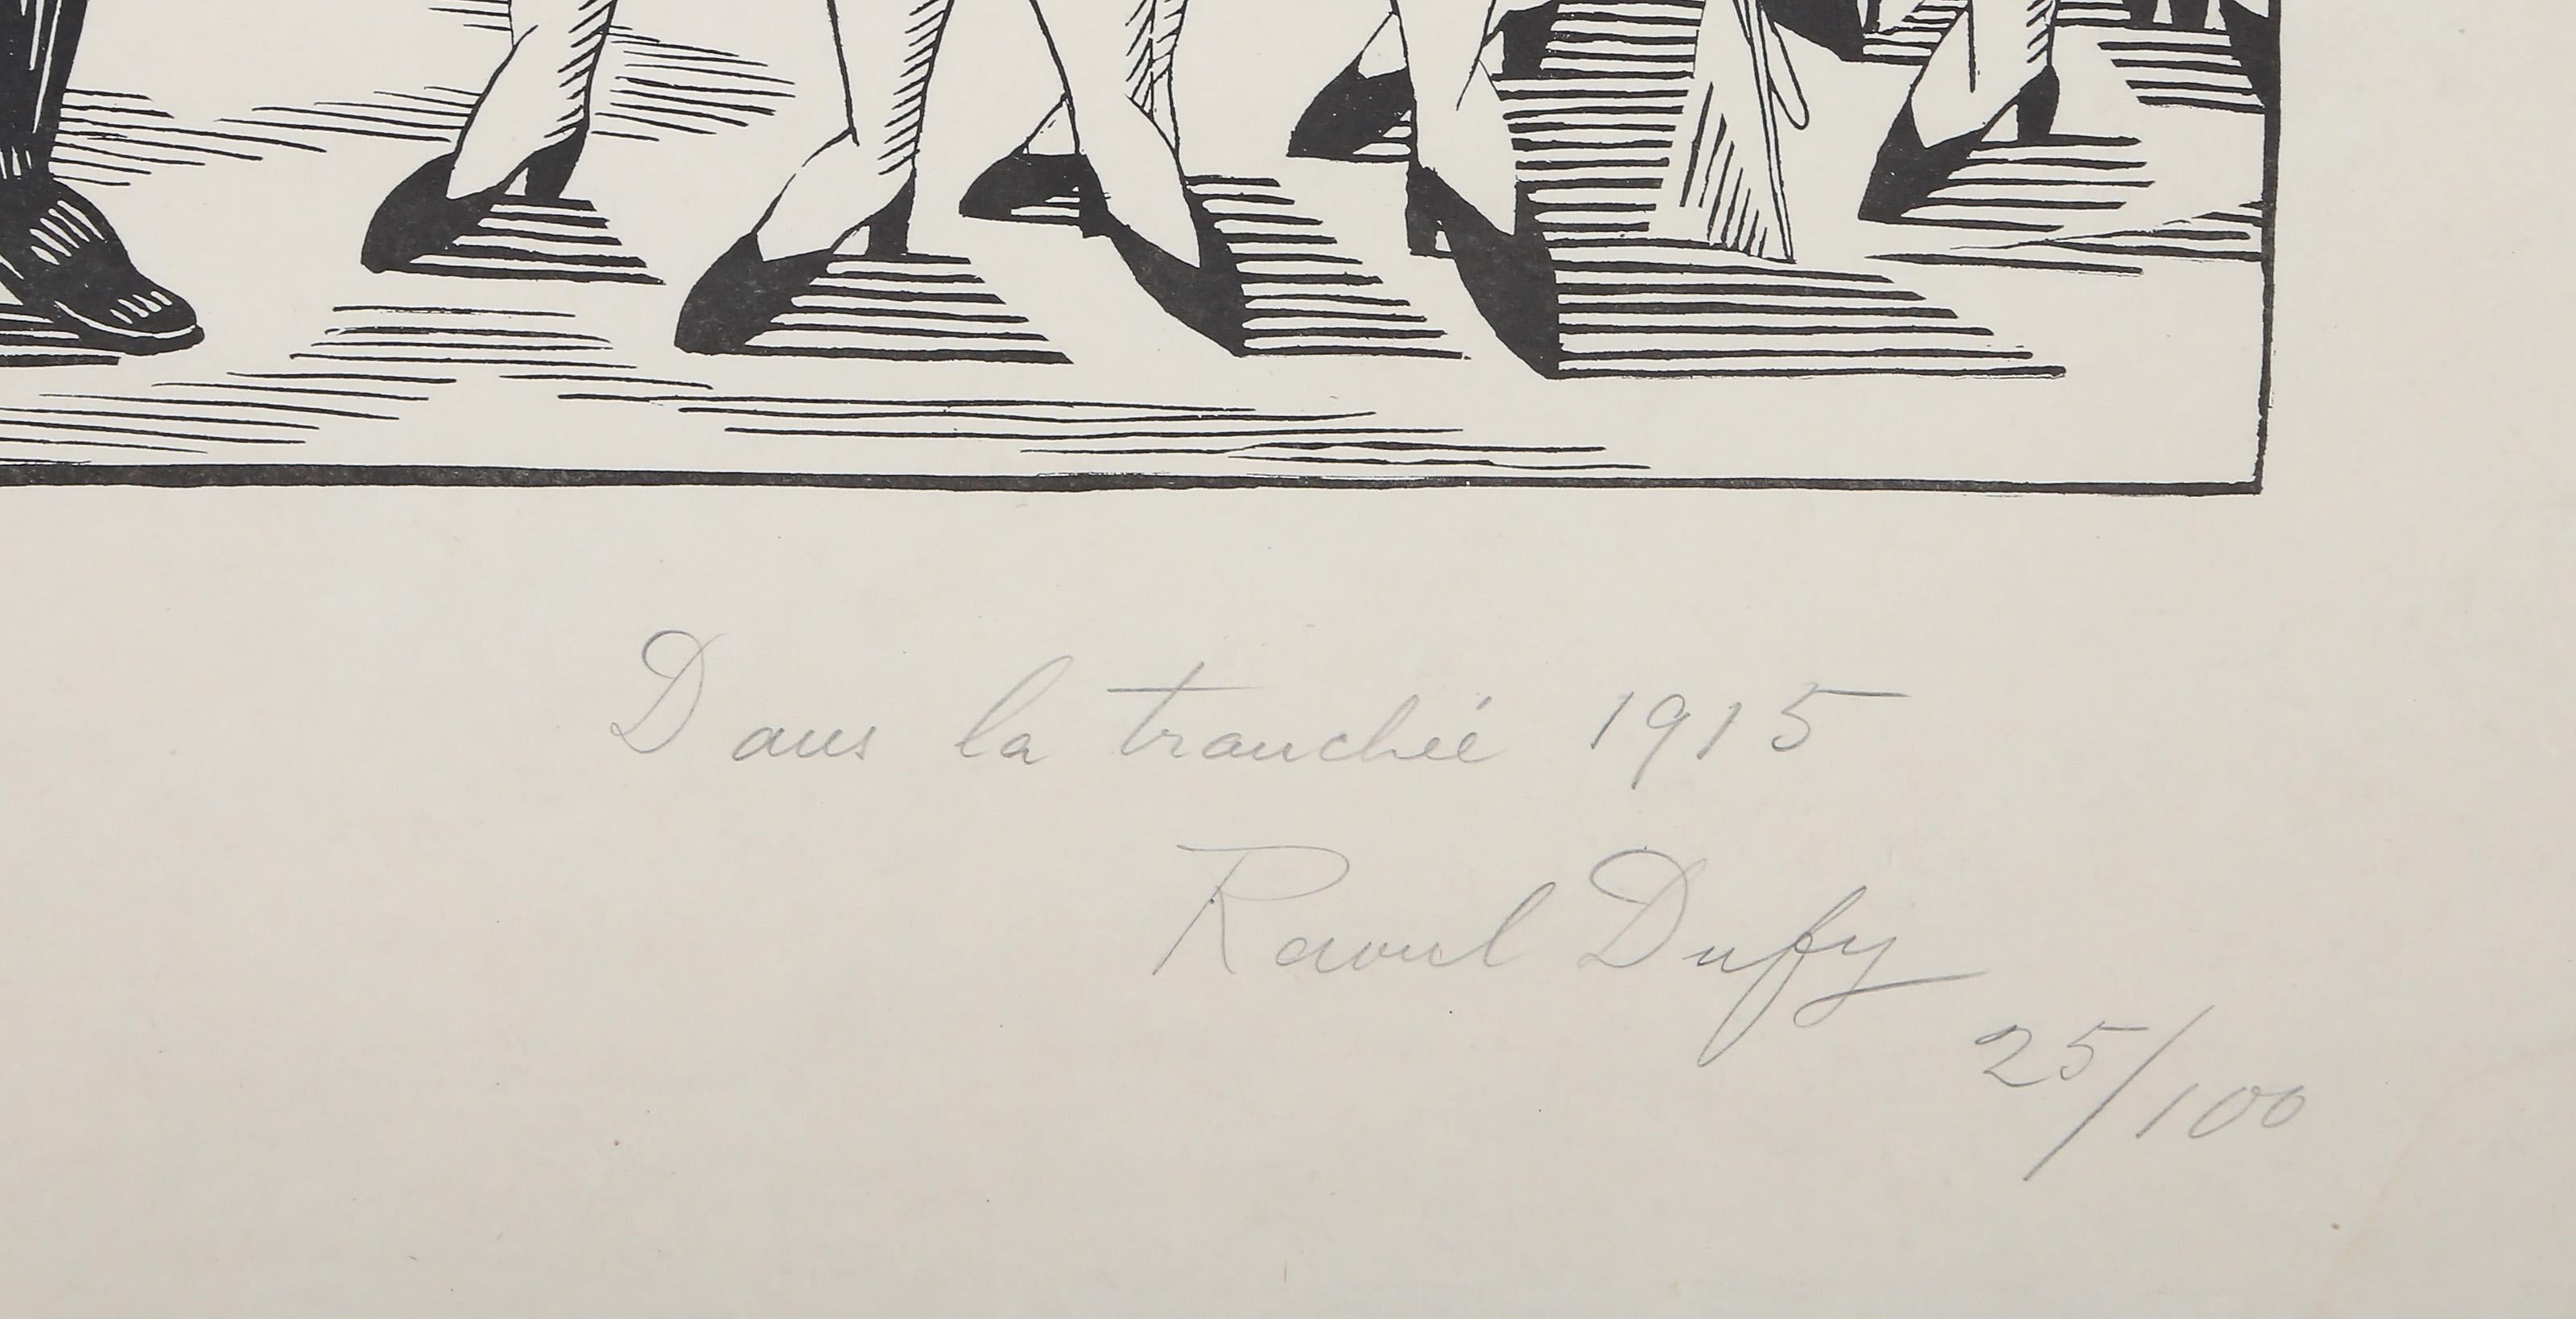 Dans la tranchée 1915
Raoul Dufy
25/100